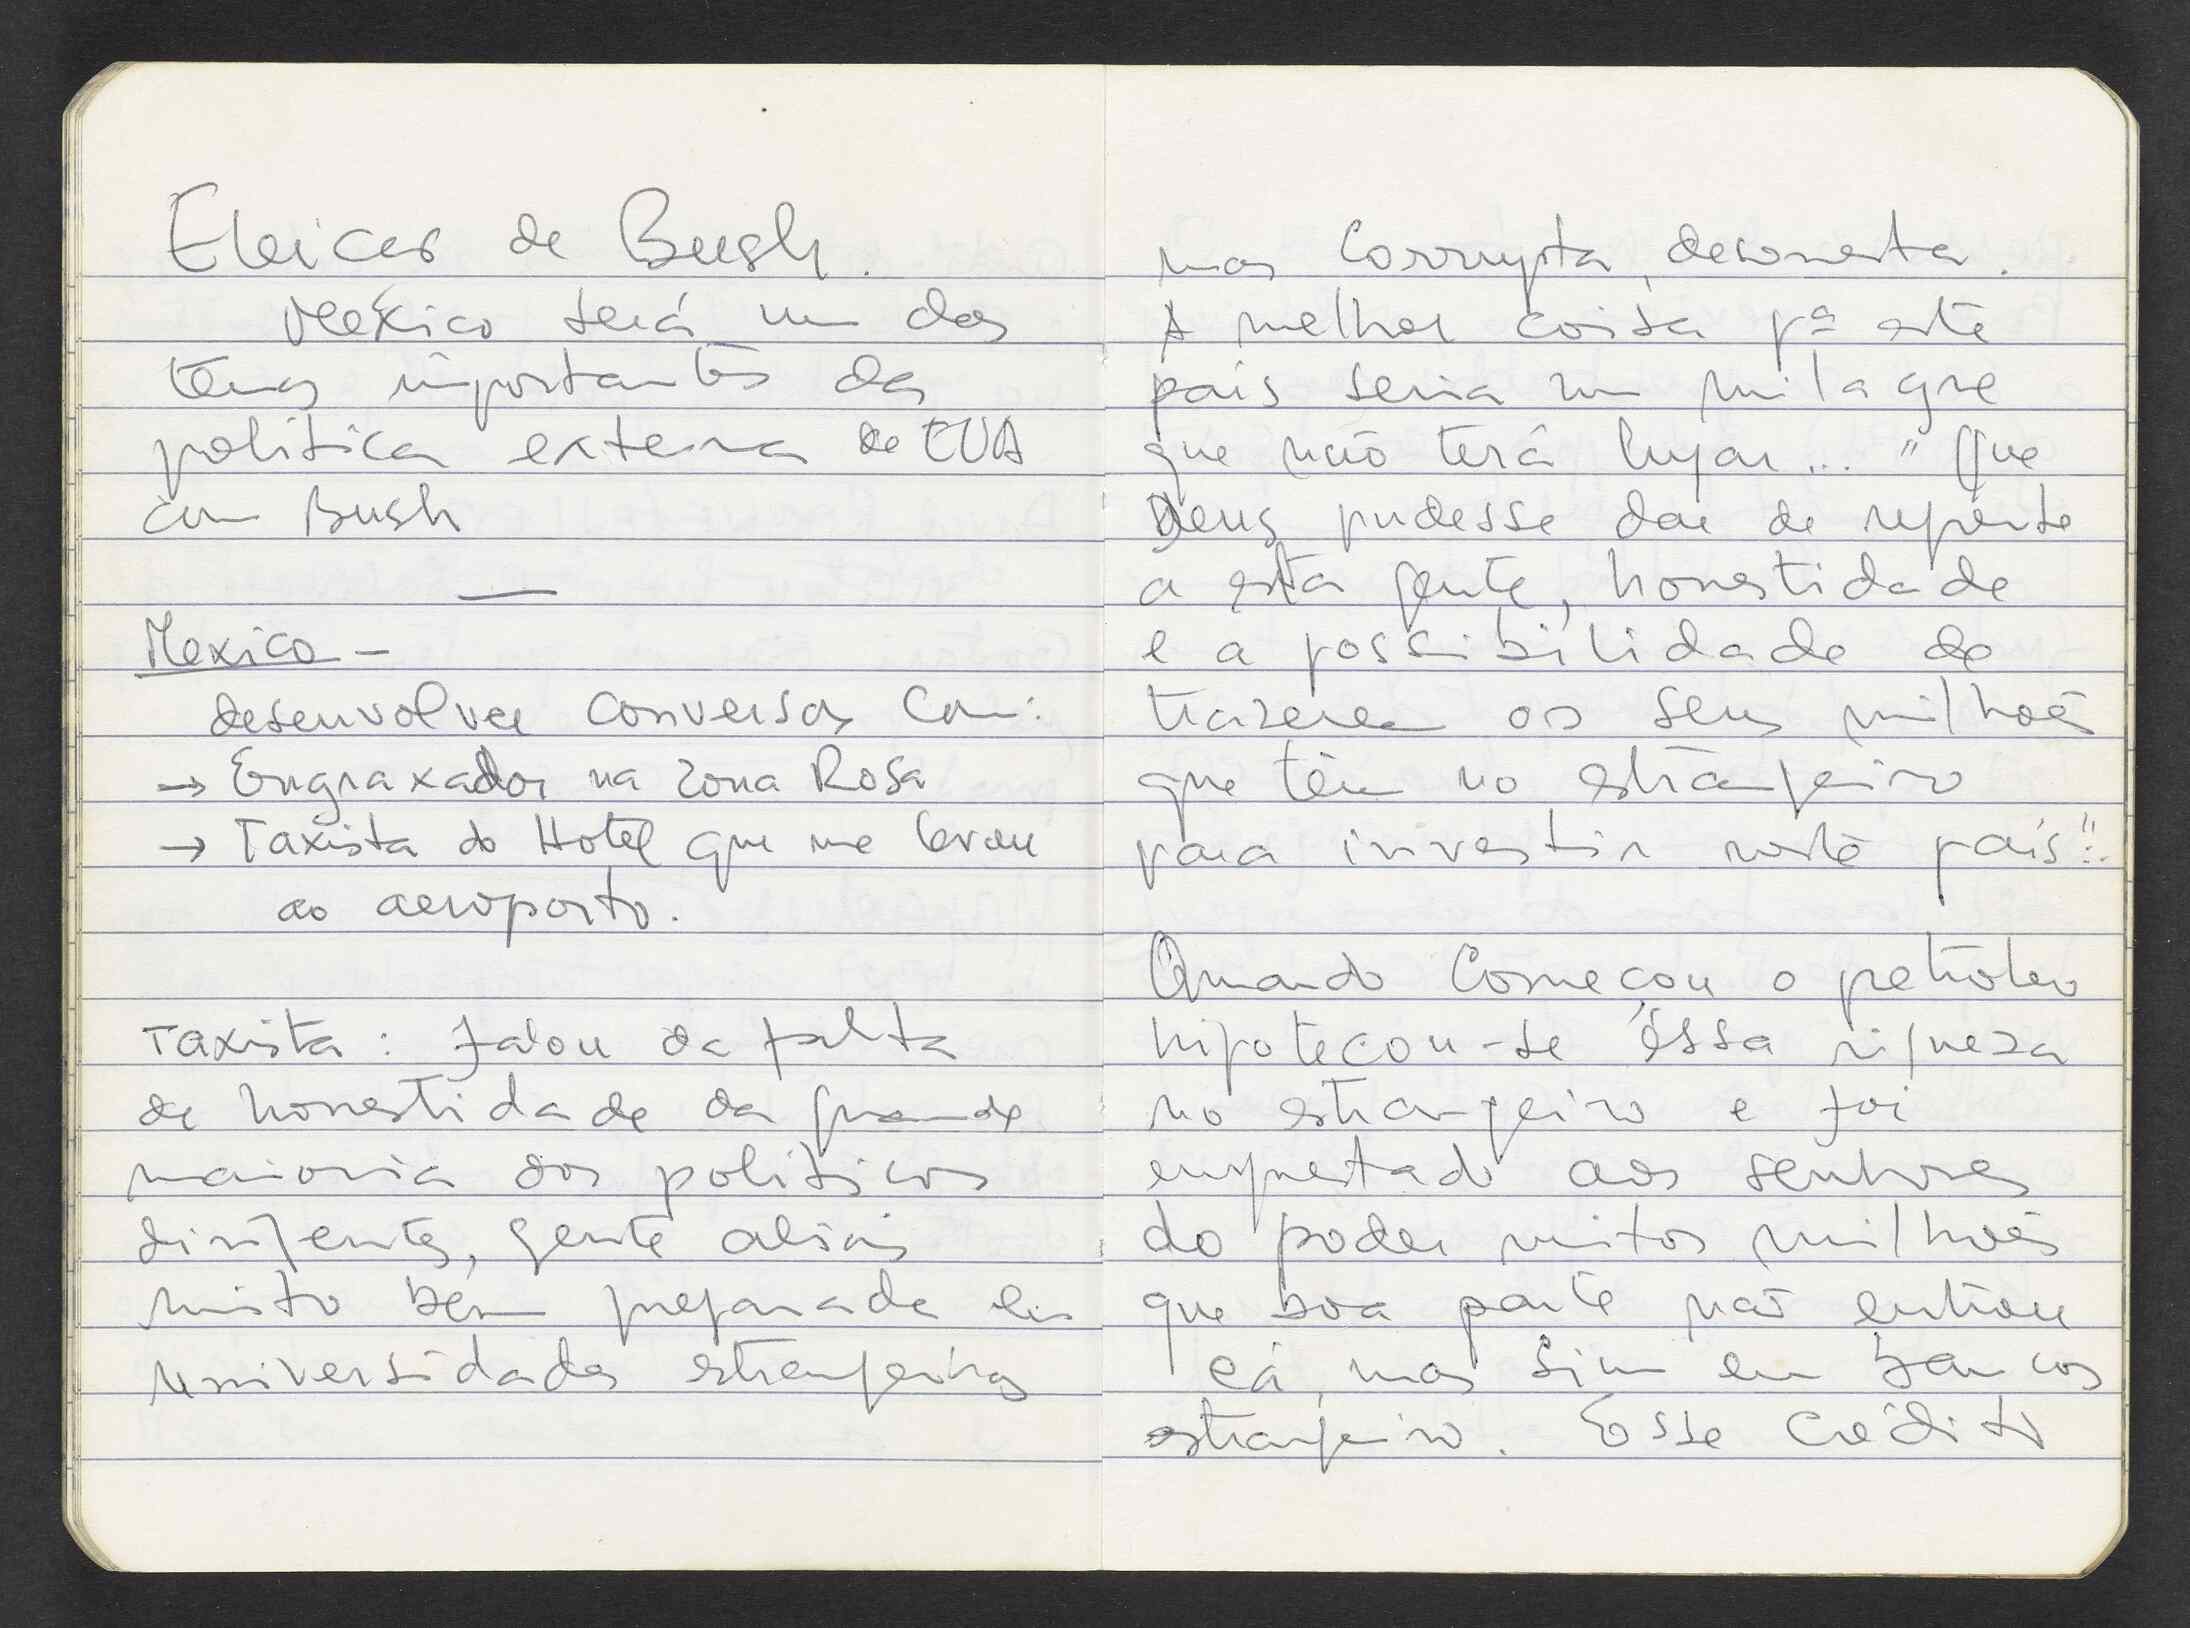 Eleições de Bush.
México será um dos
temas importantes da
política externa de EUA
com Bush
Mexico -
desenvolver conversas com:
→ Engraxador na Zona Rosa
→ Taxista do Hotel que me levou
ao aeroporto.
Taxista: falou da falta
de honestidade da grande
maioria dos políticos
dirigentes, gente aliás
muito bem preparada em
universidades estrangeiras
mas corrupta, desonesta.
A melhor coisa pª este
país seria um milagre
que não terá lugar... "Que
Deus pudesse dar de repente
a esta gente, honestidade
e a possibilidade de
trazerem os seus milhões
que têm no estrangeiro
para investir neste país"!
Quando começou o petróleo
hipotecou-se éssa riqueza
no estrangeiro e foi
emprestado aos senhores
do poder muitos milhões
que boa parte não entrou
cá, mas sim em bancos
estrangeiro. Esse crédito